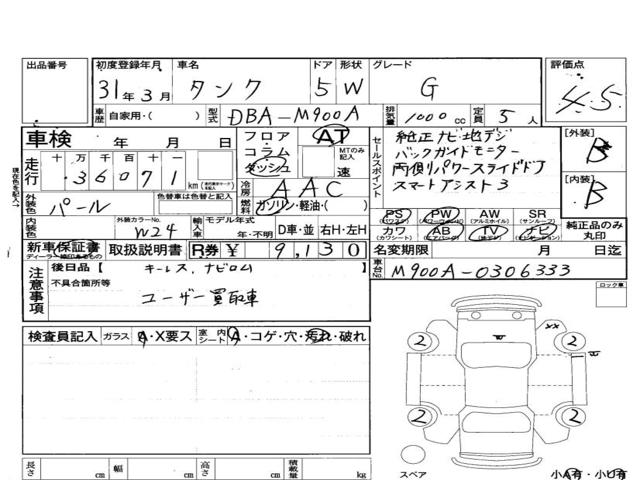 出品番号 初度登録年月 車名 ドア 形状 グレード 評価点
31年3月 タンク 5 W G 4.5
車歴 自家用・( ) 型式 DBA-M900A 排気量 1000cc 定員 5人
車検 年 月 日
フロア AT
コラム MTのみ記入
ダッシュ 速
走行 十万千百十一
36071 km
現在色を記入→
冷房 AAC
燃料 ガソリン・軽油・( )
外装色 パール 色替車は色替と記入
内装色 外装カラーNo. W24 輸入車 モデル年式 年・不明 D車・並 右H・左H
セールスポイント
純正ナビ・地デジ
バックガイドモニター
両側パワースライドドア
スマートアシスト3
[外装] B
[内装] B
PS (パワステ) PW AW (アルミホイル) SR (サンルーフ)
カワ (皮シート) AB (エアバッグ) TV (テレビ) ナビ
純正品のみ丸印
新車保証書 取扱説明書 R券 ¥ 9,130
名変期限 月 日迄
注意事項
後日品【 キーレス、ナビロム
不具合箇所等
ユーザー買取車
車台No. M900A-0306333
ロック車
検査員記入 ガラス A・X要ス 室内シート A・コゲ・穴・汚れ・破れ
2 2
2 2
XX
スペア
小A有・小U有
長さ cm 幅 cm 高さ cm 積載量 kg